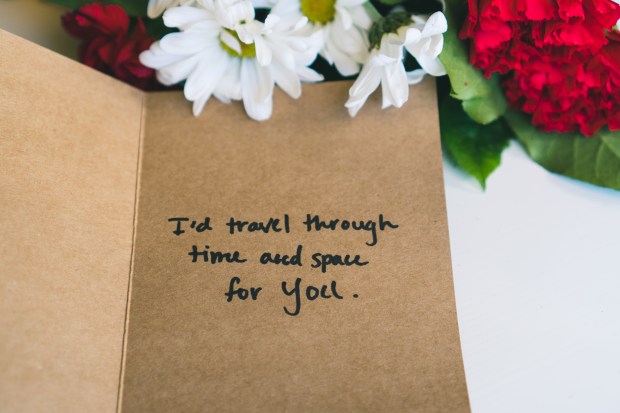 I'd travel through
time and space
for you.